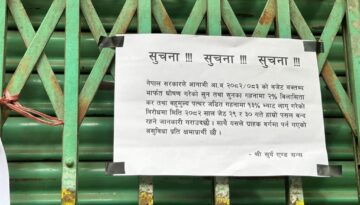 सुचना !!!  सुचना !!!  सुचना !!!
नेपाल सरकारले आगामी आ.व २०८२/०८३ को बजेट वक्तव्य
मार्फत घोषणा गरेको सुन तथा सुनका गहनामा २% बिलासिता
कर तथा बहुमुल्य पत्थर जडित गहनामा १३% भ्याट लागु गरेको
विरोधमा मिति २०८२ साल जेठ २९ र ३० गते हाम्रो पसल बन्द
रहने जानकारी गराउदछौ । साथै यसले ग्राहक वर्गमा पर्न गएको
असुबिधा प्रति क्षमाप्रार्थी छौ ।
- श्री सुर्य एण्ड सन्स